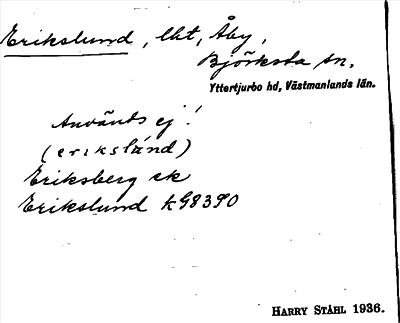 Erikslund, lht, Åby,
Björksta sn,
Yttertjurbo hd, Västmanlands län.
Används ej!
(erikslánd)
Eriksberg ek
Erikslund k G8390
HARRY STÅHL 1936.